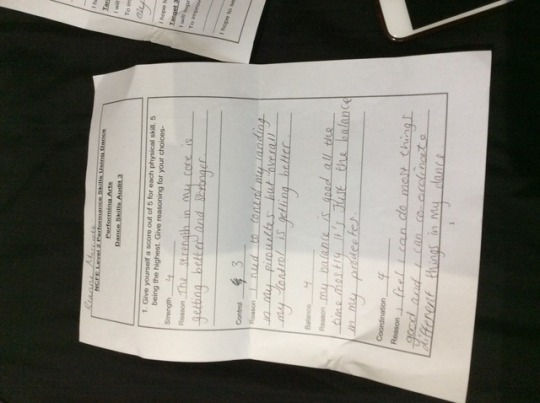 NCFE Level 2 Performance Skills Using Dance
Performing Arts
Dance Skills Audit 3
1. Give yourself a score out of 5 for each physical skill, 5
being the highest. Give reasoning for your choices-
Strength 4
Reason The strength in my core is
getting better and stronger
Control 3
Reason I need to control my landing
in my pirouettes but overall
my control is getting better.
Balance 4
Reason my balance is good all the
time mostly it's just the balance
in my
Coordination 4
Reason I feel I can do most things
good and I can co-ordinate
different things in my dance
Target 3
I hope to